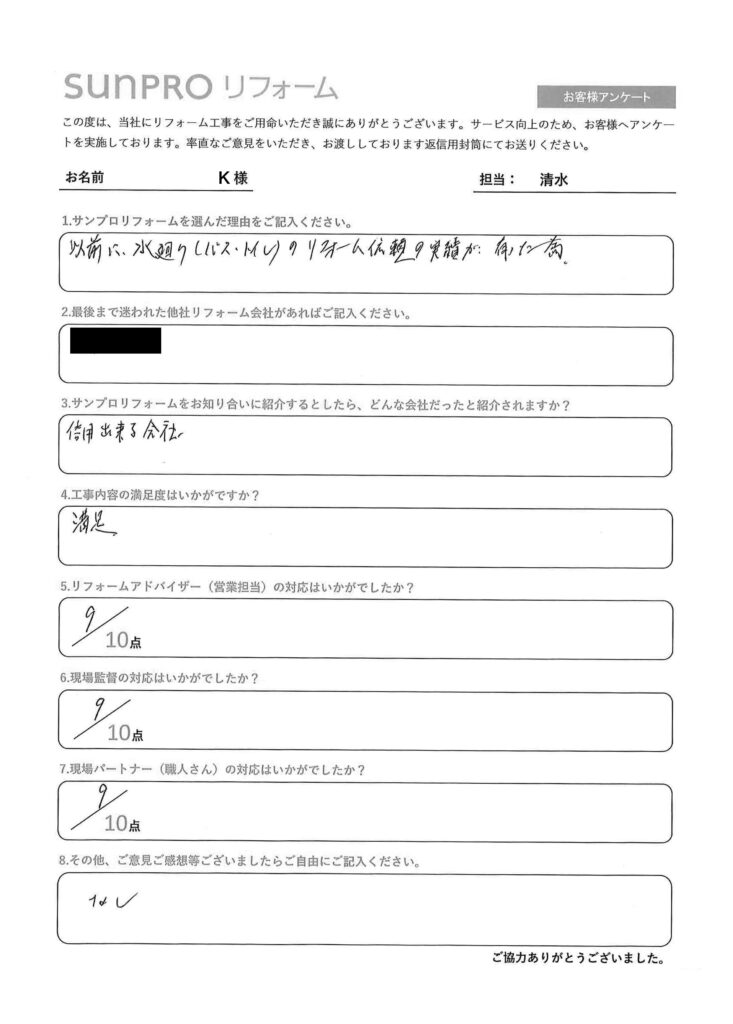 SUNPRO リフォーム
お客様アンケート
この度は、当社にリフォーム工事をご用命いただき誠にありがとうございます。サービス向上のため、お客様へアンケー
トを実施しております。率直なご意見をいただき、お渡ししております返信用封筒にてお送りください。
お名前 K 様 担当： 清水
1.サンプロリフォームを選んだ理由をご記入ください。
以前に、水廻り(バス・トイレ)のリフォーム依頼の実績が有った為。
2.最後まで迷われた他社リフォーム会社があればご記入ください。
3.サンプロリフォームをお知り合いに紹介するとしたら、どんな会社だったと紹介されますか？
信用出来る会社。
4.工事内容の満足度はいかがですか？
満足。
5.リフォームアドバイザー（営業担当）の対応はいかがでしたか？
9/10点
6.現場監督の対応はいかがでしたか？
9/10点
7.現場パートナー（職人さん）の対応はいかがでしたか？
9/10点
8.その他、ご意見ご感想等ございましたらご自由にご記入ください。
なし
ご協力ありがとうございました。